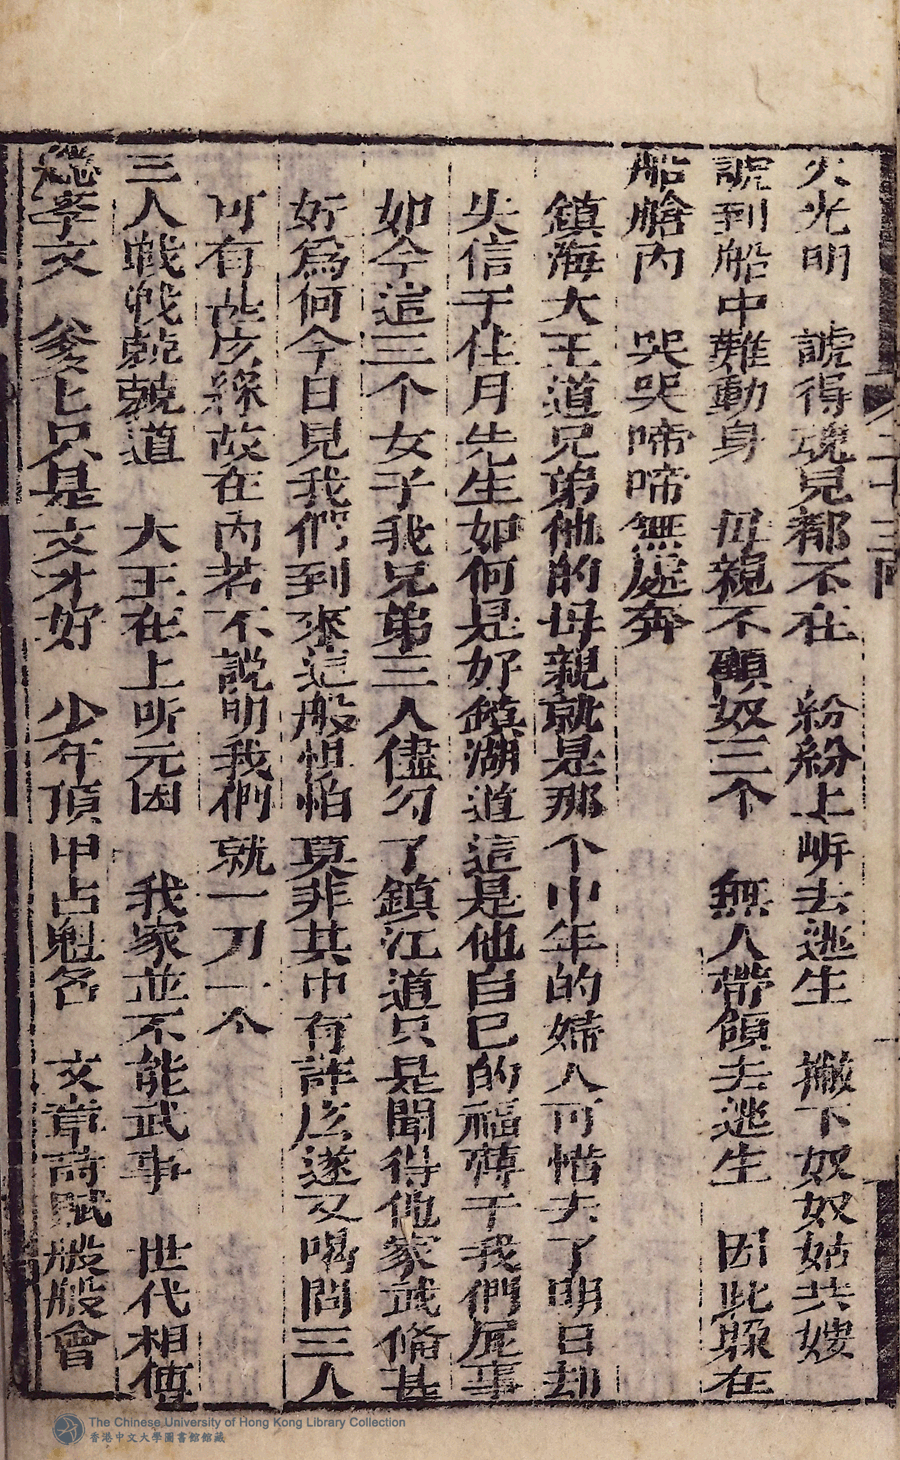 火光明　諕得魂兒都不在　紛紛上岍去逃生　撇下奴奴姑共嫂
諕到船中難動身　母親不顧奴三个　無人帶領去逃生　因此躱在
船艙內　哭哭啼啼無處奔
鎮海大王道兄弟他的母親就是那个中年的婦人可惜去了明日却
失信于住月先生如何是好鎮湖道這是他自已的福薄干我們屁事
如今這三个女子我兄弟三人儘勾了鎮江道只是聞得他家武備甚
好爲何今日見我們到來這般怛怕莫非其中有詐広遂又喝問三人
可有什広緣故在內若不說明我們就一刀一个
三人戰戰兢兢道　大王在上听元因　我家並不能武事　世代相傳
孝文　爹匕只是文才好　少年頂甲占魁名　文章詩賦般般會
二十三回
The Chinese University of Hong Kong Library Collection
香港中文大學圖書館館藏